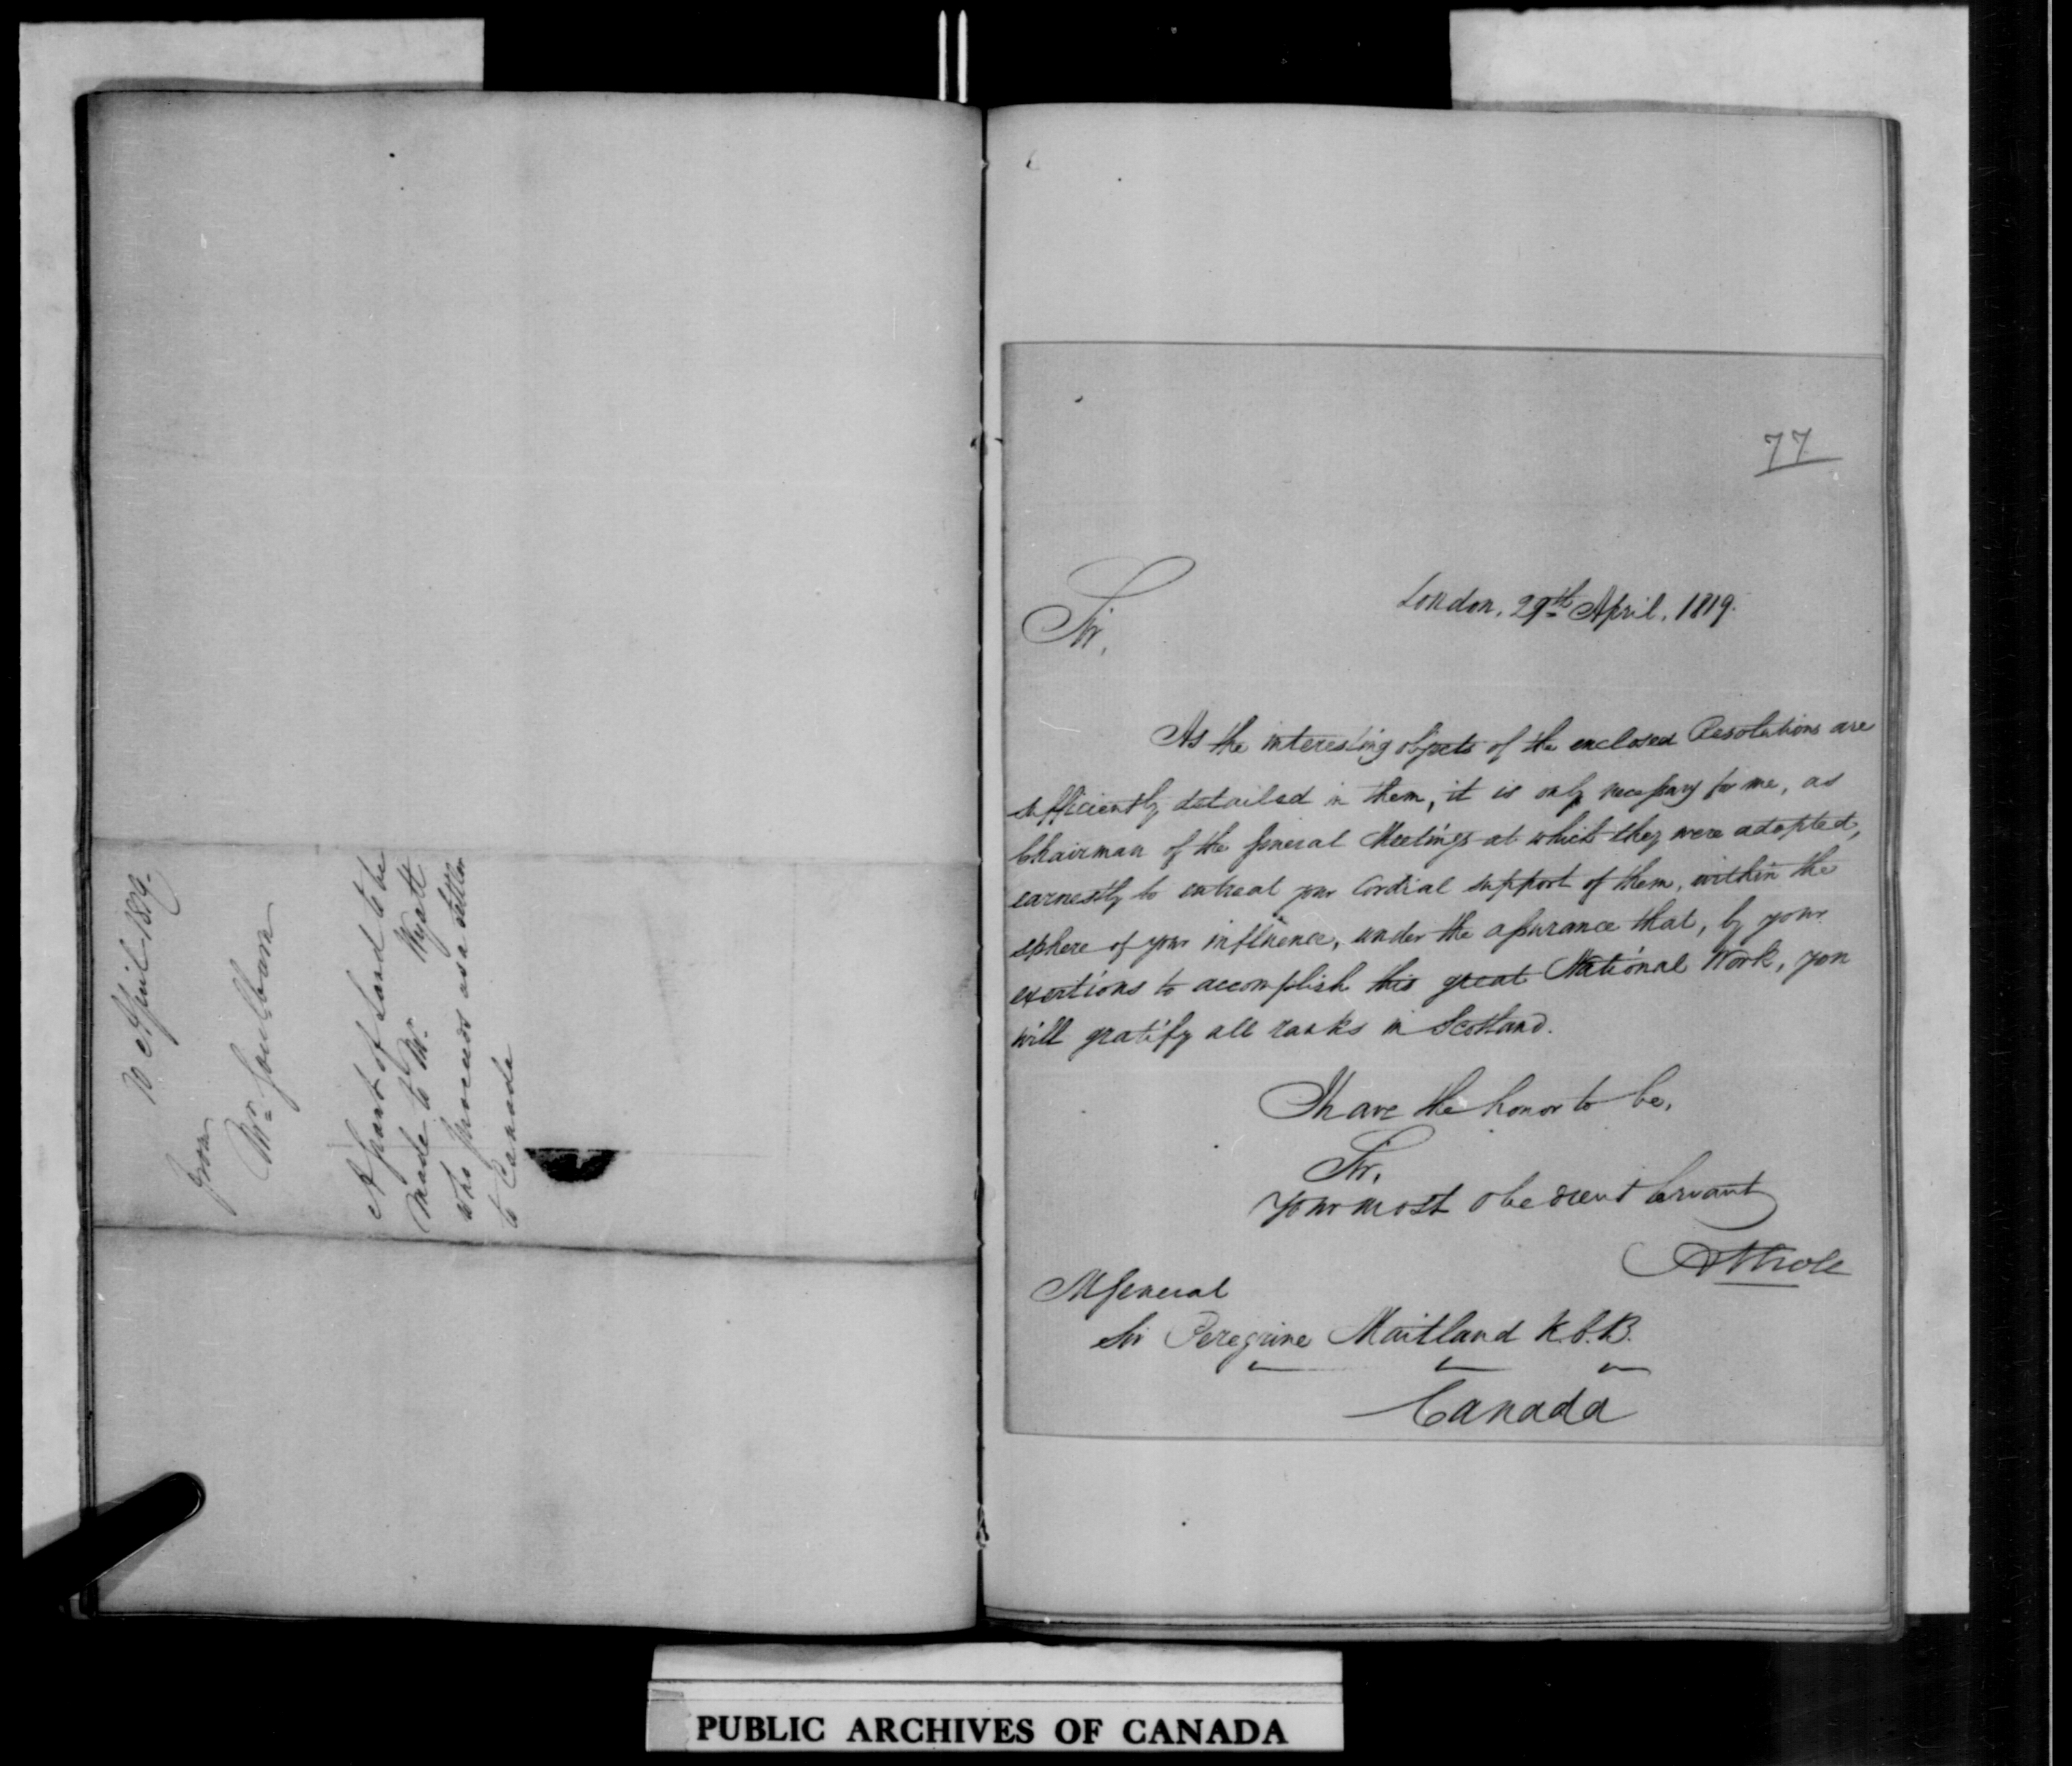 10 April 1819.
From
Mr. Goulburn
A Grant of Land to be
made to Mr. Wyatt
who proceeds as a settler
to Canada
77
London, 29th April, 1819.
Sir,
As the interesting objects of the enclosed Resolutions are
sufficiently detailed in them, it is only necessary for me, as
Chairman of the General Meetings at which they were adopted,
earnestly to entreat your Cordial support of them, within the
sphere of your influence, under the assurance that, by your
exertions to accomplish this great National Work, you
will gratify all ranks in Scotland.
I have the honor to be,
Sir,
Your most obedient Servant
Athole
M General
Sir Peregrine Maitland K.C.B.
Canada
PUBLIC ARCHIVES OF CANADA